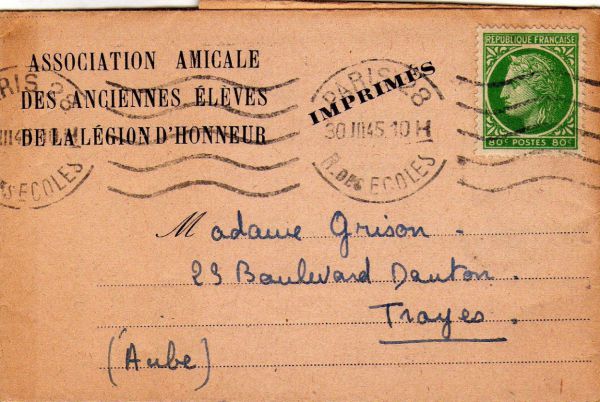 ASSOCIATION AMICALE
DES ANCIENNES ÉLÈVES
DE LA LÉGION D'HONNEUR
IMPRIMÉS
PARIS 28
30 III 45 10 H
R. DES ECOLES
PARIS 28
R. DES ECOLES
RÉPUBLIQUE FRANÇAISE
80c POSTES 80c
Madame Grison.
23 Boulevard Danton.
Troyes.
(Aube)